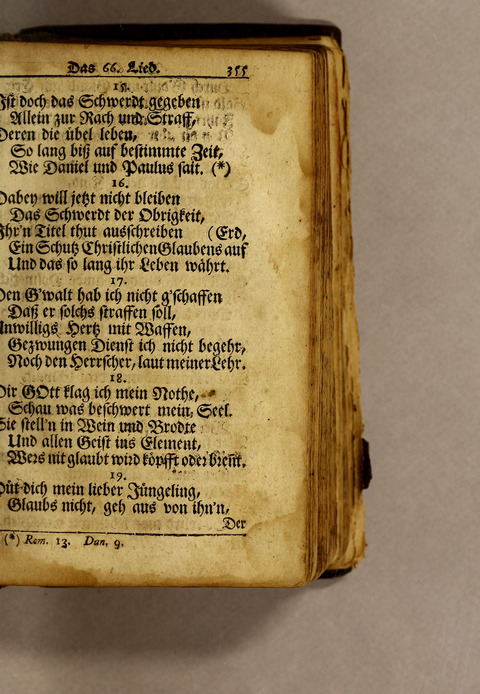 Das 66. Lied. 355
15.
Ist doch das Schwerdt gegeben
Allein zur Rach und Straff,
Deren die übel leben,
So lang biß auf bestimmte Zeit,
Wie Daniel und Paulus sait. (*)
16.
Dabey will jetzt nicht bleiben
Das Schwerdt der Obrigkeit,
Ihr'n Titel thut ausschreiben (Erd,
Ein Schutz Christlichen Glaubens auf
Und das so lang ihr Leben währt.
17.
Den G'walt hab ich nicht g'schaffen
Daß er solchs straffen soll,
Unwilligs Hertz mit Waffen,
Gezwungen Dienst ich nicht begehr,
Noch den Herrscher, laut meiner Lehr.
18.
Dir GOtt klag ich mein Nothe,
Schau was beschwert mein Seel.
Sie stell'n in Wein und Brodte
Und allen Geist ins Element,
Wers nit glaubt wird köpfft oder brent.
19.
Hüt dich mein lieber Jüngeling,
Glaubs nicht, geh aus von ihn'n,
Der
(*) Rom. 13. Dan. 9.